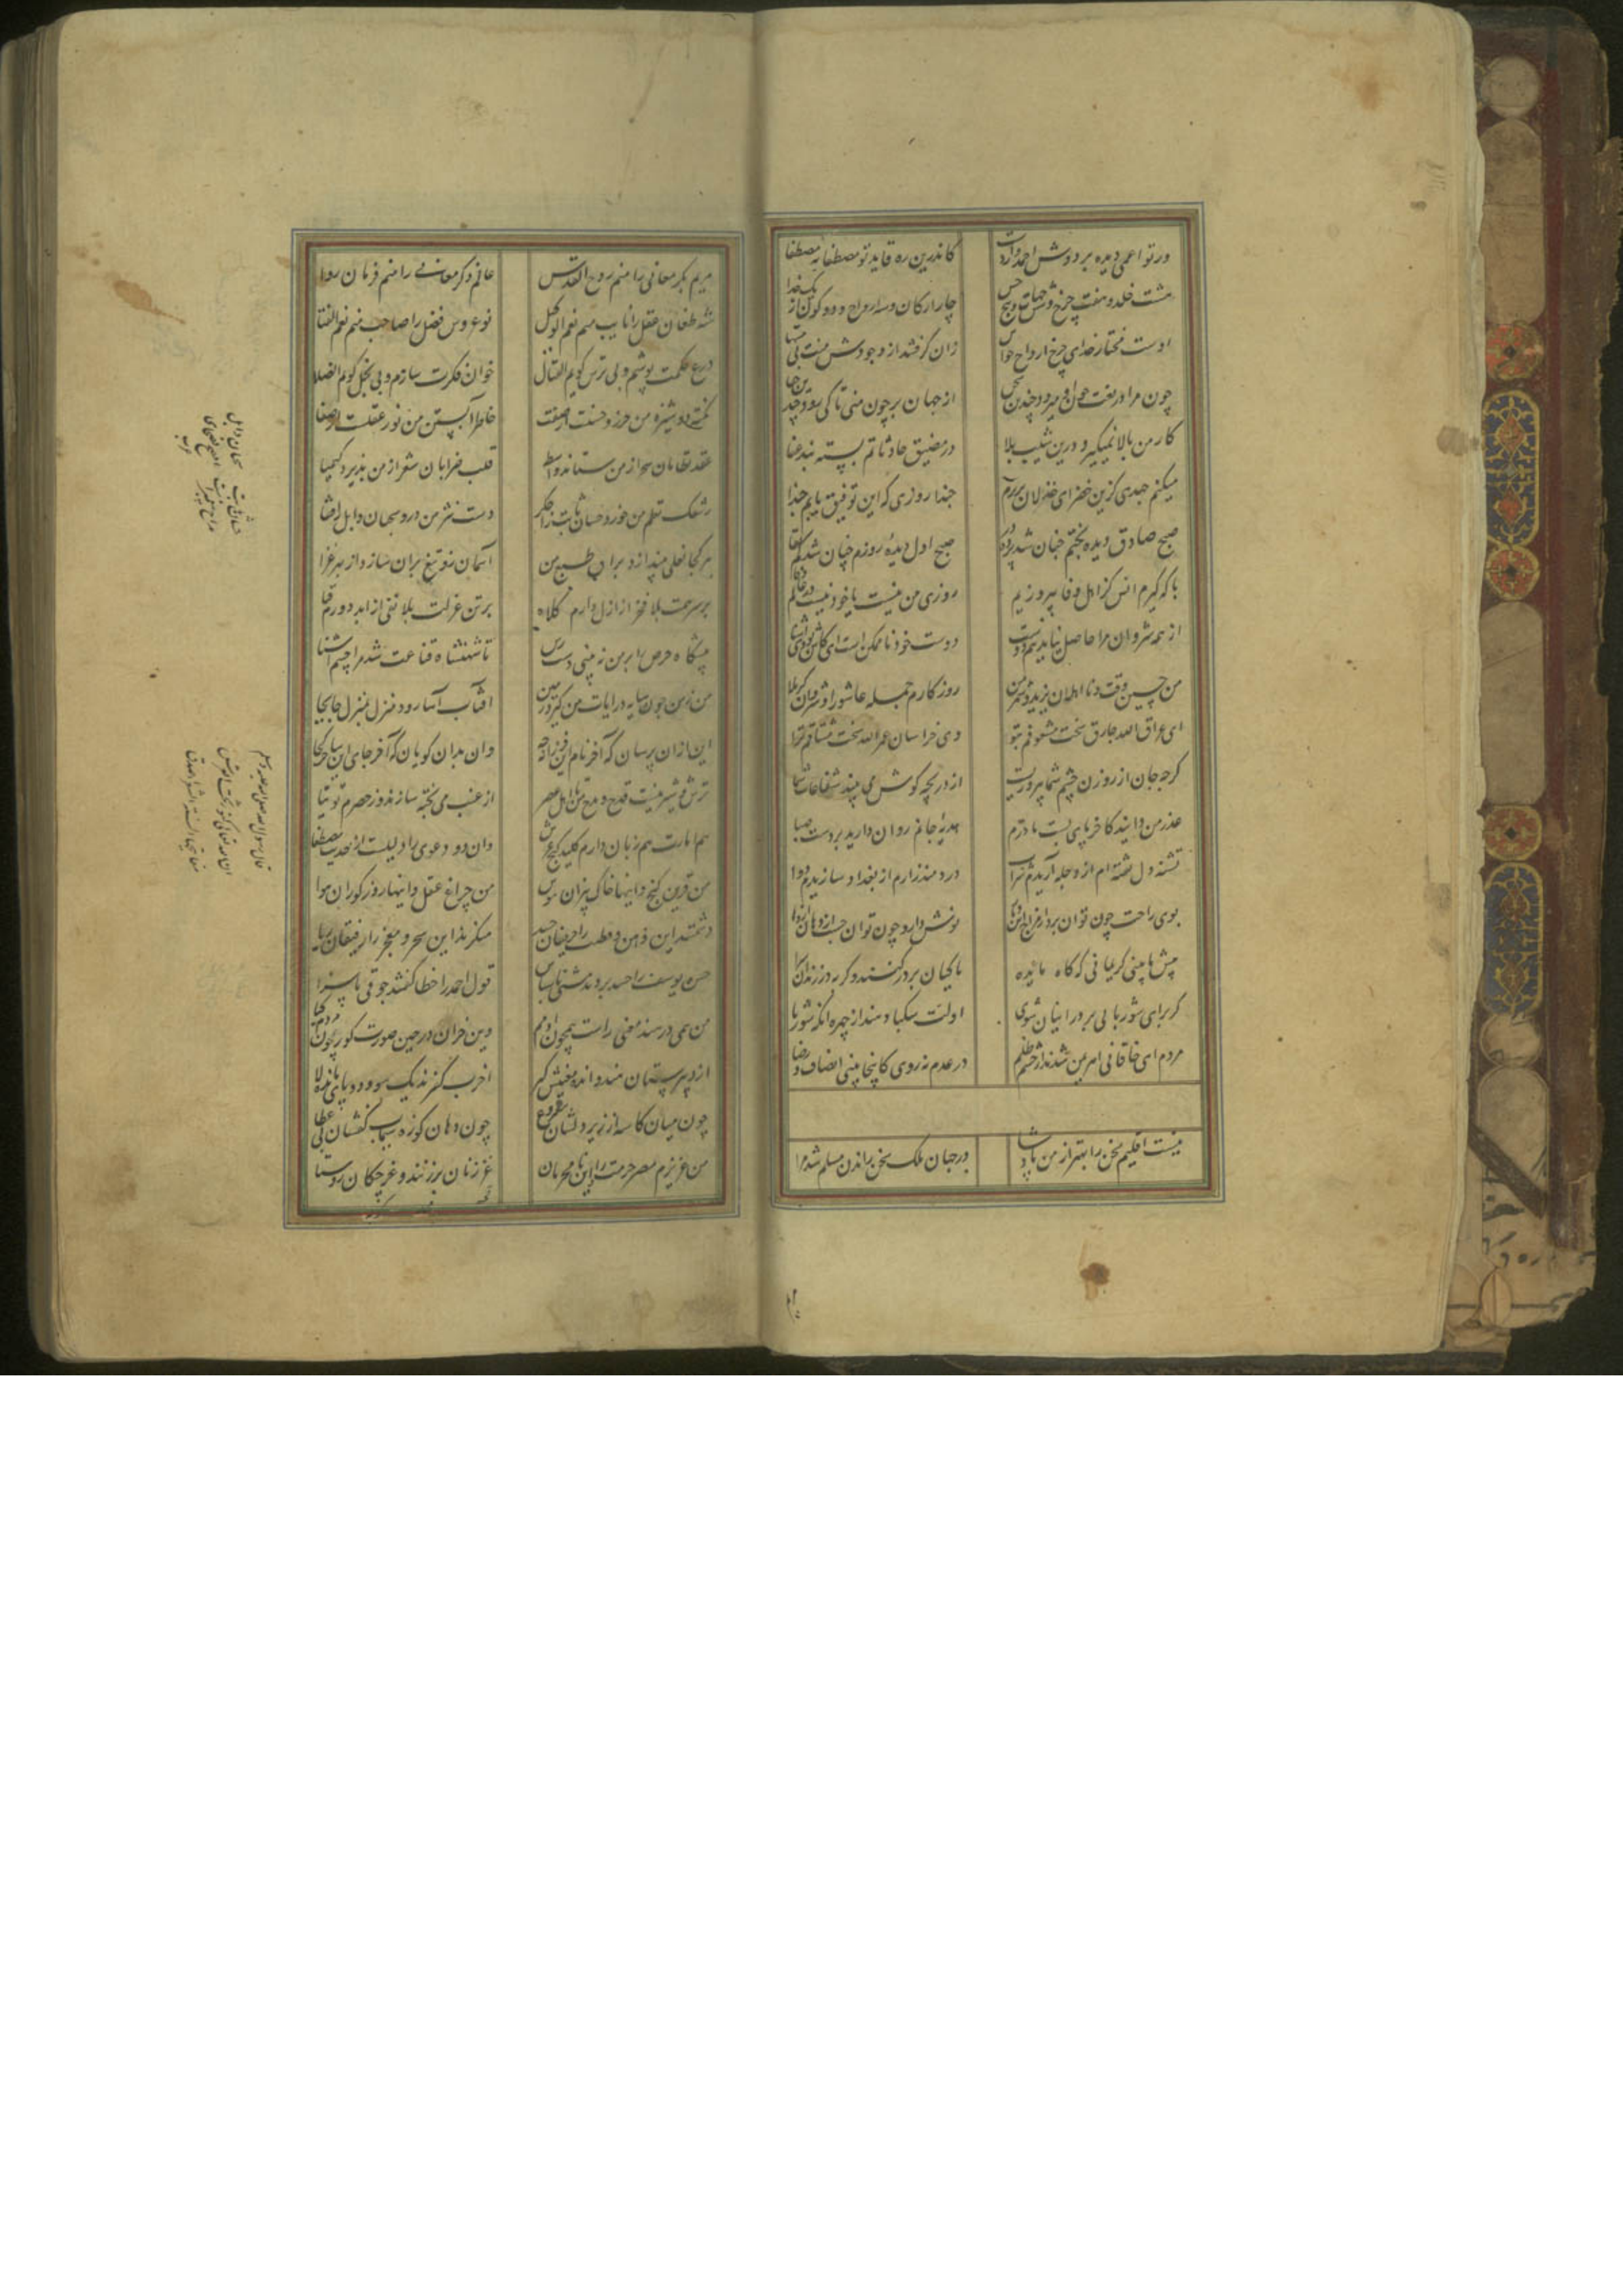 ورتو اعمی دیده بر دوش احمد دار دست
کاندرین ره قاید تو مصطفا به مصطفا
هشت خلد و هفت چرخ و شش جهات و پنج حس
چار ارکان و سه ارواح و دو کون از یک خدا
اوست مختار خدای چرخ ارواح حواس
زان گرفتند از وجودش منت بی منتها
چون مرا در نعت چون اویی میرود چندین سخن
از جهان بر چون منی تا کی رود چندین جفا
کار من بالا نمیگیرد درین شیب بلا
در مضیق حادثاتم بسته بند عنا
میکنم جهدی کزین خضرای خذلان بر پرم
حبذا روزی که این توفیق یابم حبذا
صبح صادق دیده بختم چنان شد پرده در
صبح اول دیده روزم چنان شد کم بقا
با که گیرم انس کز اهل وفا بی روزیم
روزی من نیست یا خود نیست در عالم وفا
از همه شروان مرا حاصل نیامد نیم دوست
دوست خود ناممکن است ای کاش بودی آشنا
من حسین وقت و نااهلان یزید و شمر من
روزگارم جمله عاشورا و شروان کربلا
ای عراق الله جارک سخت مشعوفم بتو
وی خراسان عمرک الله سخت مشتاقم ترا
گرچه جان از روزن چشم شما بی روزیست
از دریچه گوش می بیند شعاعات شما
عذر من دانید کاخر پای بست مادرم
هدیه جانم روان دارید بر دست صبا
تشنه دل تفته ام از دجله آریدم شراب
دردمند زارم از بغداد سازیدم دوا
بوی راحت چون توان برد از مزاج این دیار
نوش دارو چون توان جست از دهان اژدها
پیش ما بینی کریمانی که گاه مایده
ماکیان بر در کنند و گربه در زندان سرا
گر برای شوربایی بر در اینان شوی
اولت سکبا دهند از چهره آنگه شوربا
مردم ای خاقانی اهریمن شدند از خشم و ظلم
در عدم نه روی کانجا بینی انصاف و رضا
نیست اقلیم سخن را بهتر از من پادشا
در جهان ملک سخن راندن مسلم شد مرا
مریم بکر معانی را منم روح القدس
عالم ذکر معالی را منم فرمان روا
شه طغان عقل را نایب منم نعم الوکیل
نوعروس فضل را صاحب منم نعم الفتا
درع حکمت پوشم و بی ترس گویم القتال
خوان فکرت سازم و بی بخل گویم الصلا
نکته دوشیزه من حرز روحست از صفت
خاطر آبستن من نور عقلست از صفا
عقد نظامان سحر از من ستاند واسطه
قلب ضرابان شعر از من پذیرد کیمیا
رشک نظم من خورد حسان ثابت را جگر
دست نثر من درد سحبان وایل را قفا
هر کجا نعلی بیندازد براق طبع من
آسمان زو تیغ بران سازد از بهر غزا
بر سر همت بلا فخر از ازل دارم کلاه
بر تن عزلت بلا بغی از ابد دوزم قبا
پیشگاه حرص را بر من نبینی دست رس
تا شهنشاه قناعت شد مرا چشم آشنا
من زمن چون سایه و ایات من گرد زمین
آفتاب آسا رود منزل بمنزل جابجا
این از آن پرسان که آخر نام این فرزانه چه
وان بدان گویان که آخر جای این ساحر کجا
ترش و شیرینست قدح و مدح من تا اهل عصر
از عنب می پخته سازند وز حصرم توتیا
هم امارت هم زبان دارم کلید گنج عرش
وان دو دعوی را دلیلست از حدیث مصطفا
من قرین گنج و اینها خاک بیزان هوس
من چراغ عقل و اینها روز کوران هوا
دشمنند این ذهن و فطنت را حریفان حسد
منکرند این سحر و معجز را رفیقان ریا
حسن یوسف را حسد بردند مشتی ناسپاس
قول احمد را خطا گفتند جوقی ناسزا
من همی در هند معنی راست همچون آدمم
وین خران در چین صورت کوژ چون مردم گیا
از دبیرستان
چون میان کاسه ارزیز دلشان بی فروغ
چون دهان کوزه سیماب کفشان بی عطا
من عزیزم مصر حرمت را و این نامحرمان
غر زنان برزنند و غرچگان روستا